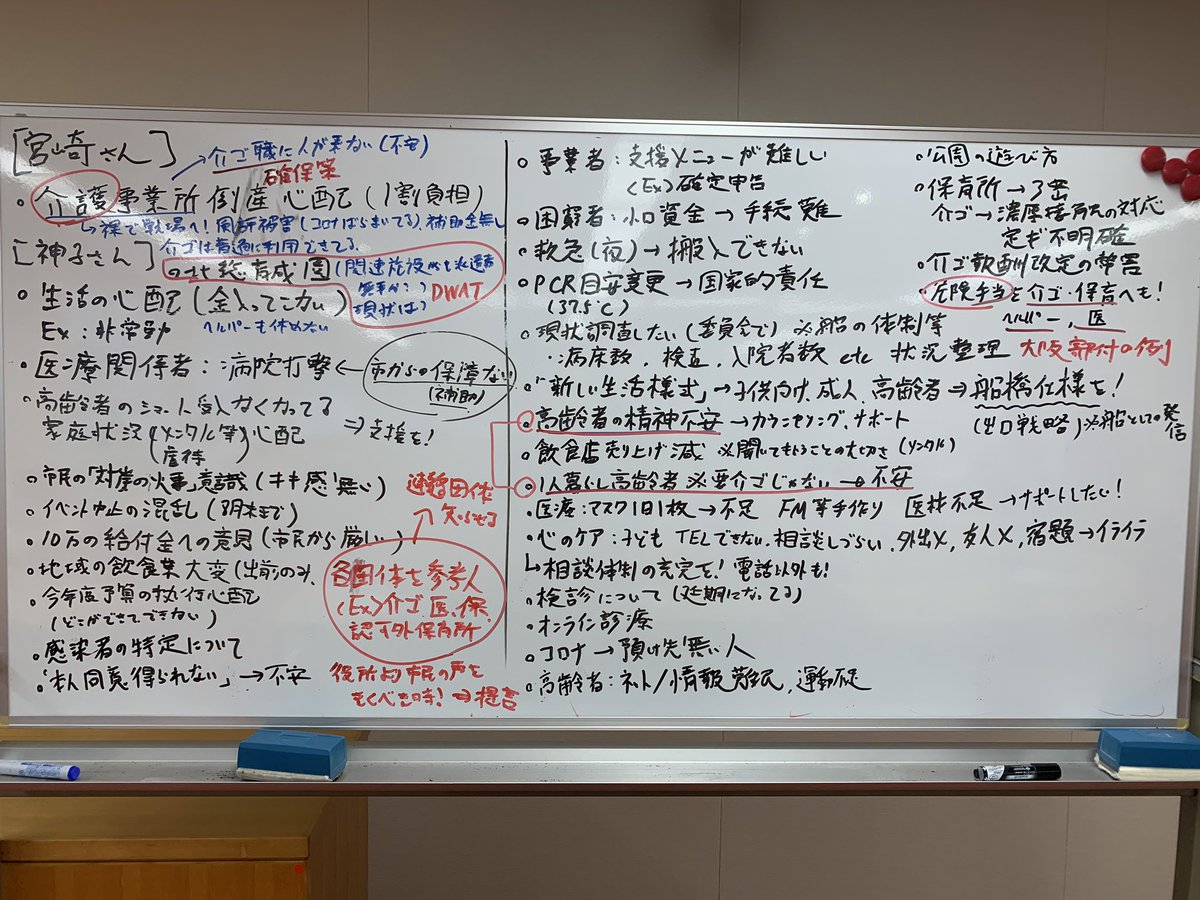 [宮崎さん]
→介ゴ職に人が来ない(不安)
確保策
・介護事業所倒産心配(1割負担)
↳裸で戦場へ!風評被害(コロナばらまいてる)、補助金無し
介ゴは普通に利用できてる。
[神子さん]
の北総育成園(関連施設から
現状は)
DWAT
・生活の心配(金入ってこない)
Ex:非常勤
ヘルパーも休めない
・医療関係者:病院打撃←市からの保障ない
(補助)
・高齢者のショート受入なくなってる
家庭状況(メンタル等)心配
虐待
⇒支援を!
・市民の「対岸の火事」意識(キキ感無い)
・イベント中止の混乱(8月末まで)
・10万の給付金への意見(市民から厳しい)
・地域の飲食業大変(出前のみ)
・今年度予算の執行心配
(どこができてできない)
・感染者の特定について
・「本人同意得られない」→不安
連盟団体
知らせる
各団体を参考人
(Ex)介ゴ、医、保、
認可外保育所
役所も市民の声を
きくべき時!⇒提言
・事業者:支援メニューが難しい
(Ex)確定申告
・困窮者:小口資金→手続難
・救急(夜)→搬入できない
・PCR目安変更→国家的責任
(37.5℃)
・現状調査したい(委員会で)※船の体制等
・病床数、検査、入院者数 etc 状況整理
・「新しい生活様式」→子供向け、成人、高齢者⇒船橋仕様を!
(出口戦略)※船としての発信
・高齢者の精神不安→カウンセリング、サポート
・飲食店売り上げ減 ※聞いてもらうことの大切さ(メンタル)
・1人暮し高齢者※要介ゴじゃない→不安
・医療:マスク1日1枚→不足 FM等手作り 医材不足→サポートしたい!
・心のケア:子ども TELできない、相談しづらい、外出×、友人×、宿題→イライラ
↳相談体制の充実を!電話以外も!
・検診について(延期になってる)
・オンライン診療
・コロナ→預け先無い人
・高齢者:ネット/情報難民、運動不足
・公園の遊び方
・保育所→3密
介ゴ→濃厚接触の対応
定ギ不明確
・介ゴ報酬改定の弊害
・危険手当を介ゴ・保育へも!
ヘルパー、医
大阪寄付の例